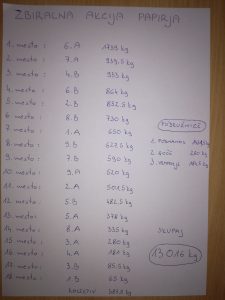 ZBIRALNA AKCIJA PAPIRJA
1. mesto: 6.A 1793 kg
2. mesto: 7.A 959.5 kg
3. mesto: 4.B 953 kg
4. mesto: 6.B 864 kg
5. mesto: 2.B 832.5 kg
6. mesto: 8.B 730 kg
7. mesto: 1.A 650 kg
8. mesto: 9.B 627.5 kg
9. mesto: 7.B 590 kg
10. mesto: 9.A 520 kg
11. mesto: 2.A 501.5 kg
12. mesto: 5.B 482.5 kg
13. mesto: 5.A 378 kg
14. mesto: 8.A 335 kg
15. mesto: 3.A 280 kg
16. mesto: 4.A 181 kg
17. mesto: 3.B 85.5 kg
18. mesto: 1.B 65 kg
PODRUŽNICE
kg
2. kg
3. kg
SKUPAJ
13 016 kg